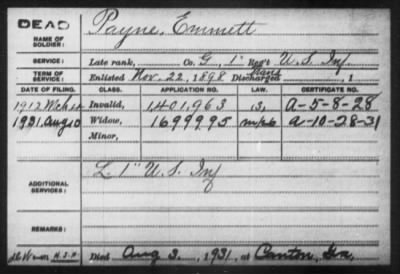 DEAD
NAME OF SOLDIER: Payne, Emmett
SERVICE: Late rank, Co. G, 1" Reg't U.S. Inf.
TERM OF SERVICE: Enlisted Nov. 22, 1898 Discharged , 1
DATE OF FILING. CLASS. APPLICATION NO. LAW. CERTIFICATE NO.
1912 Invalid, 1,401,963 A-5-8-28
1931 Aug 10 Widow, 1699995 A-10-28-31
Minor,
ADDITIONAL SERVICES: L. 1" U.S. Inf
REMARKS:
Died Aug 3, 1931, at Canton, Ga.